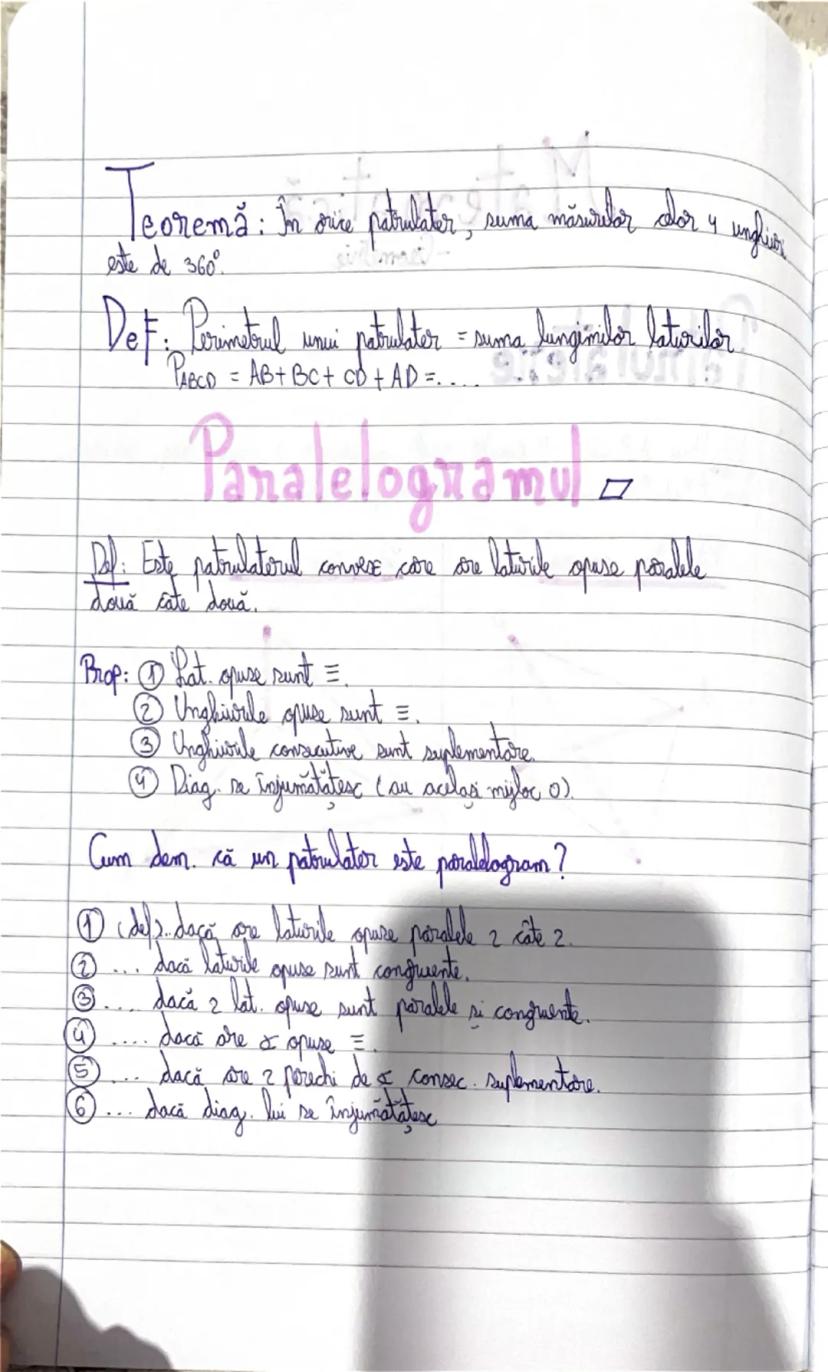 Teoremă: În orice patrulater, suma măsurilor celor 4 unghiuri
este de 360°.
Def: Perimetrul unui patrulater = suma lungimilor laturilor
PABCD = AB+BC+CD+AD=....
Paralelogramul ▱
Def: Este patrulaterul convex care are laturile opuse paralele
două câte două.
Prop: ① Lat. opuse sunt ≡.
② Unghiurile opuse sunt ≡.
③ Unghiurile consecutive sunt suplementare.
④ Diag. se înjumătățesc (au același mijloc O).
Cum dem. că un patrulater este paralelogram?
① (def).. dacă are laturile opuse paralele 2 câte 2.
② ... dacă laturile opuse sunt congruente.
③ .... dacă 2 lat. opuse sunt paralele și congruente.
④ .... dacă are ∢ opuse ≡.
⑤ ... dacă are 2 perechi de ∢ consec. suplementare.
⑥ ... dacă diag. lui se înjumătățesc